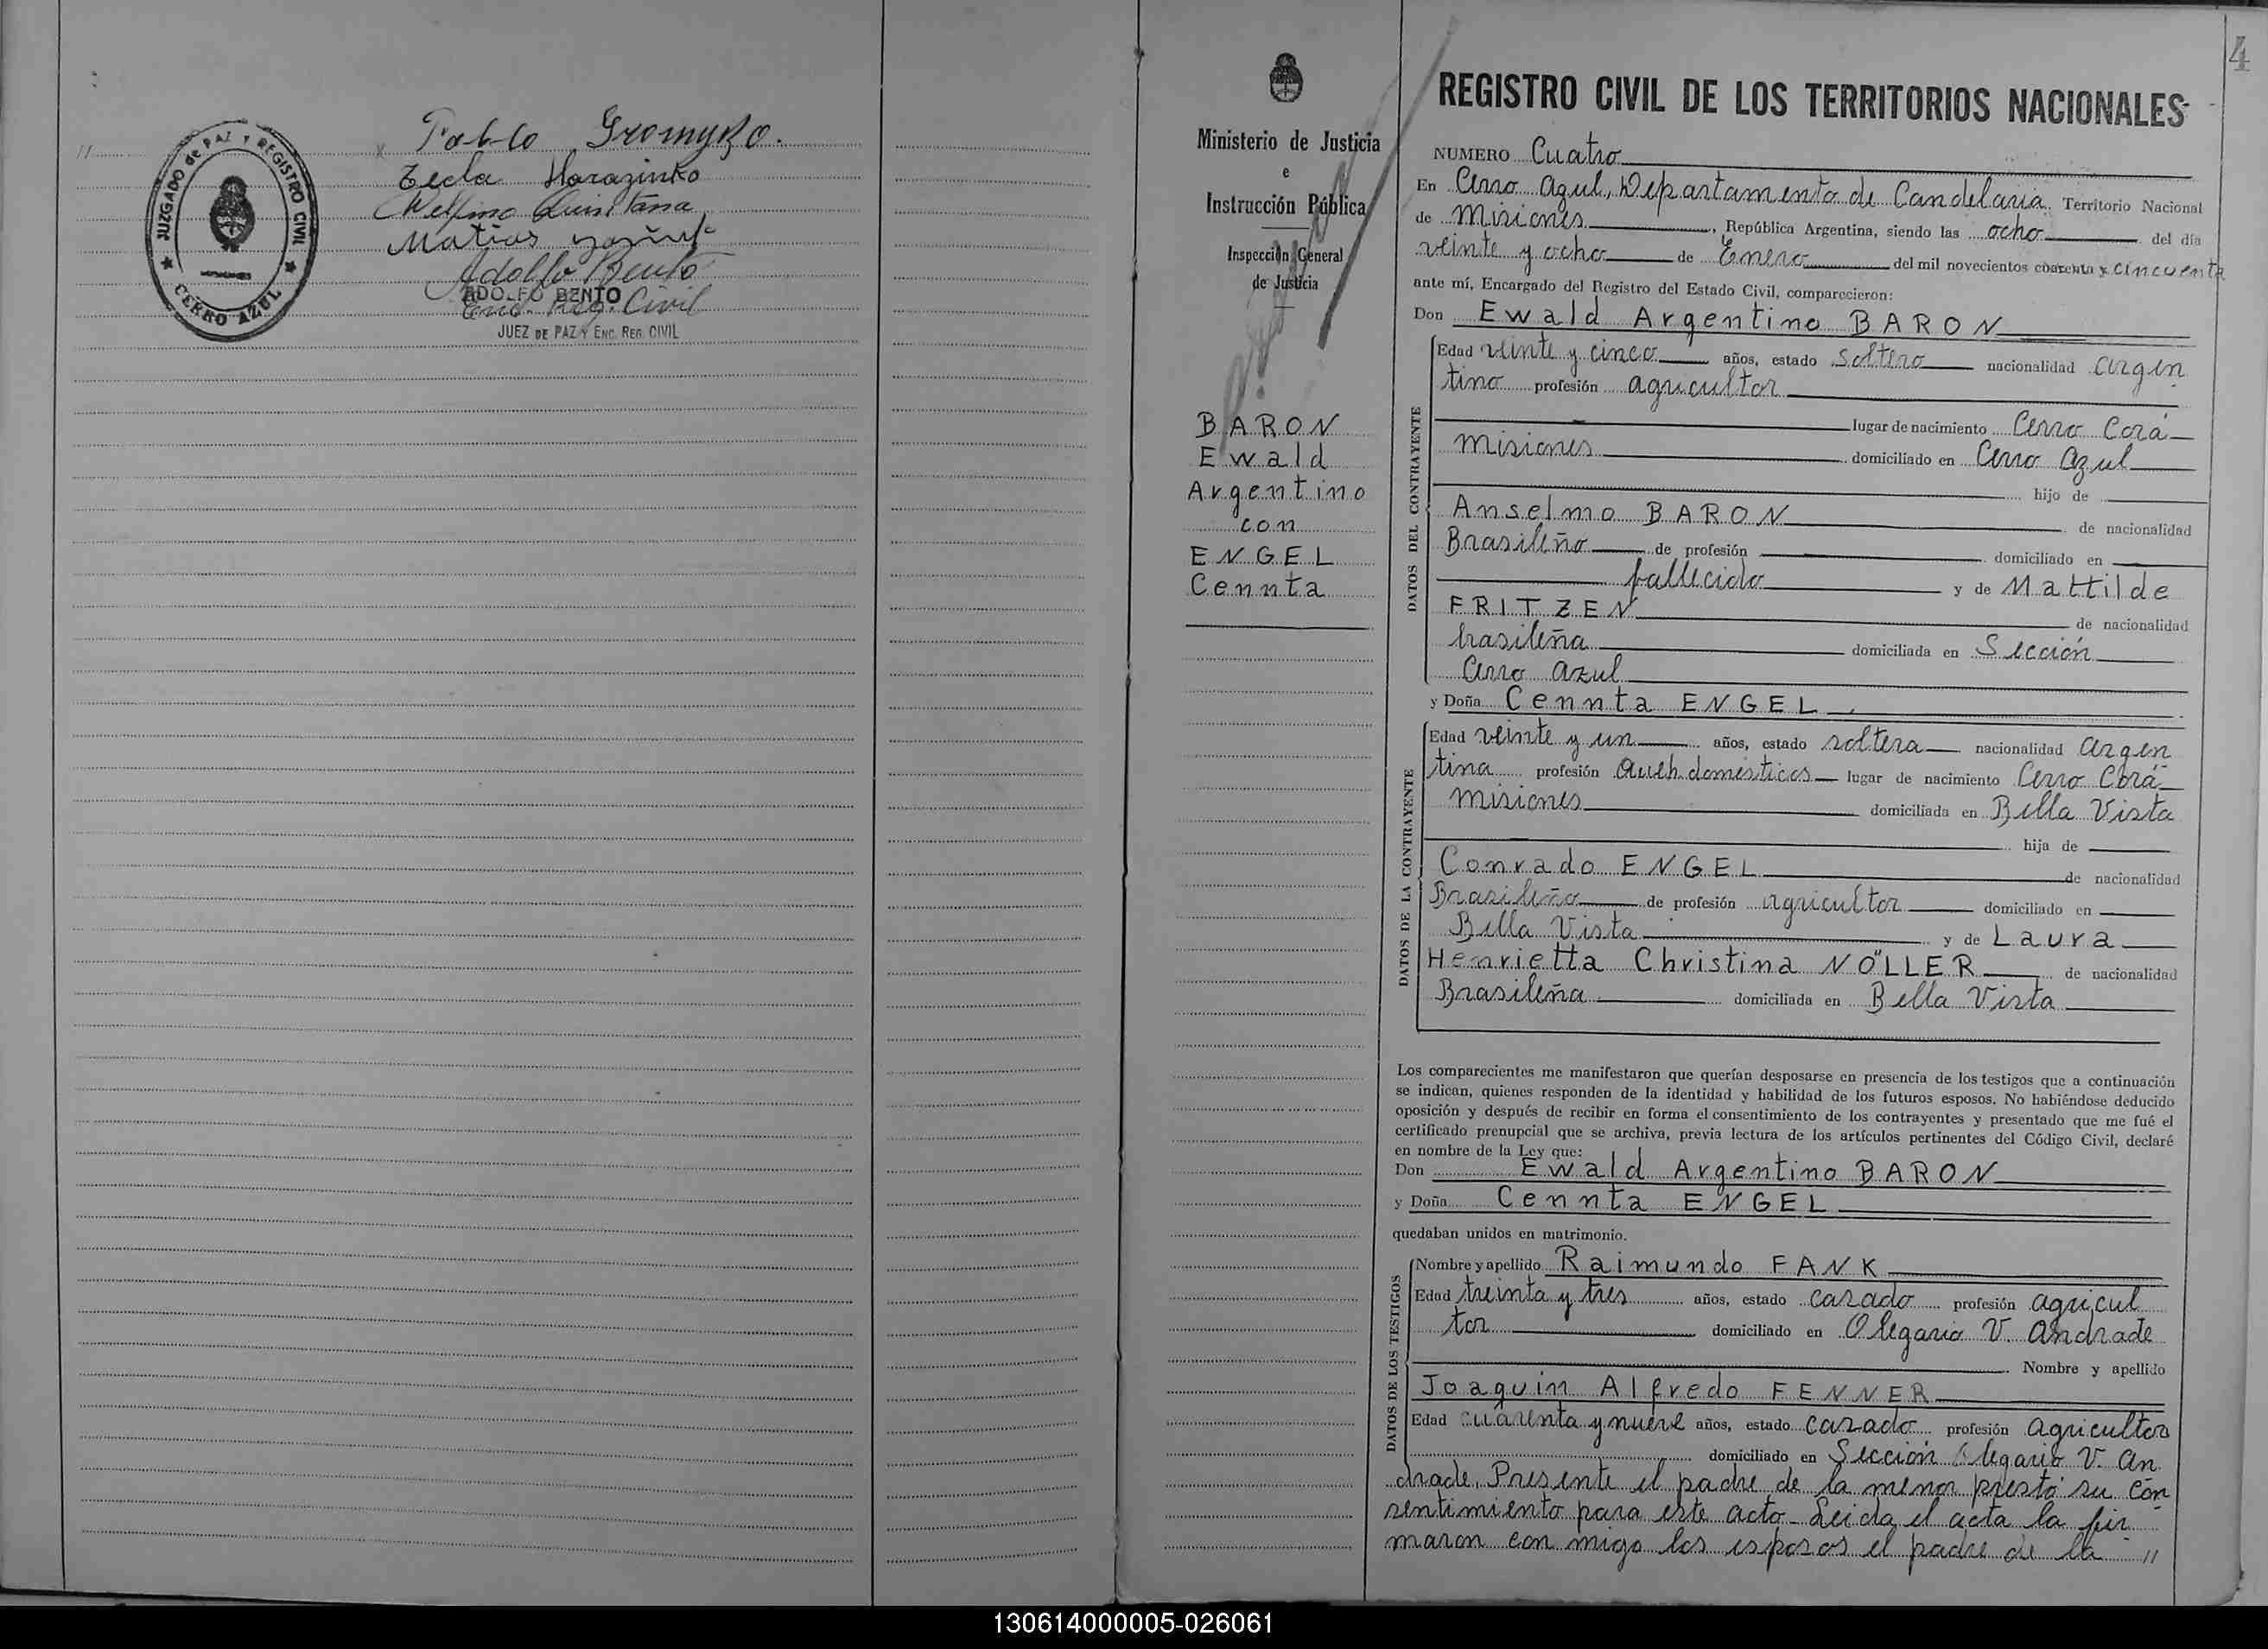 Pablo Gromyko.
Tecla Harazinko
Delfino Quintana
Matias
Adolfo Bento
ADOLFO BENTO
Enc. Reg. Civil
JUEZ DE PAZ Y ENC. REG. CIVIL
JUZGADO de PAZ Y REGISTRO CIVIL
CERRO AZUL
Ministerio de Justicia
e
Instrucción Pública
Inspección General
de Justicia
BARON
Ewald
Argentino
con
ENGEL
Cennta
4
REGISTRO CIVIL DE LOS TERRITORIOS NACIONALES
NUMERO Cuatro
En Cerro Azul, Departamento de Candelaria Territorio Nacional
de Misiones, República Argentina, siendo las ocho del día
veinte y ocho de Enero del mil novecientos cuarenta y cincuenta
ante mí, Encargado del Registro del Estado Civil, comparecieron:
Don Ewald Argentino BARON
Edad veinte y cinco años, estado soltero nacionalidad argen
tino profesión agricultor
lugar de nacimiento Cerro Corá
Misiones domiciliado en Cerro Azul
hijo de
Anselmo BARON de nacionalidad
Brasileño de profesión domiciliado en
fallecido y de Mattilde
FRITZEN de nacionalidad
brasileña domiciliada en Sección
Cerro Azul
DATOS DEL CONTRAYENTE
y Doña Cennta ENGEL
Edad veinte y un años, estado soltera nacionalidad argen
tina profesión Queh. domésticos lugar de nacimiento Cerro Corá
Misiones domiciliada en Bella Vista
hija de
Conrado ENGEL de nacionalidad
Brasileño de profesión agricultor domiciliado en
Bella Vista y de Laura
Henrietta Christina NÖLLER de nacionalidad
Brasileña domiciliada en Bella Vista
DATOS DE LA CONTRAYENTE
Los comparecientes me manifestaron que querían desposarse en presencia de los testigos que a continuación
se indican, quienes responden de la identidad y habilidad de los futuros esposos. No habiéndose deducido
oposición y después de recibir en forma el consentimiento de los contrayentes y presentado que me fué el
certificado prenupcial que se archiva, previa lectura de los artículos pertinentes del Código Civil, declaré
en nombre de la Ley que:
Don Ewald Argentino BARON
y Doña Cennta ENGEL
quedaban unidos en matrimonio.
Nombre y apellido Raimundo FANK
Edad treinta y tres años, estado casado profesión agricul
tor domiciliado en Olegario V. Andrade
Nombre y apellido
Joaquin Alfredo FENNER
Edad cuarenta y nueve años, estado casado profesión agricultor
domiciliado en Sección Olegario V. An
DATOS DE LOS TESTIGOS
drade. Presente el padre de la menor prestó su con
sentimiento para este acto - Leida el acta la fir
maron con migo los esposos el padre de la "
130614000005-026061